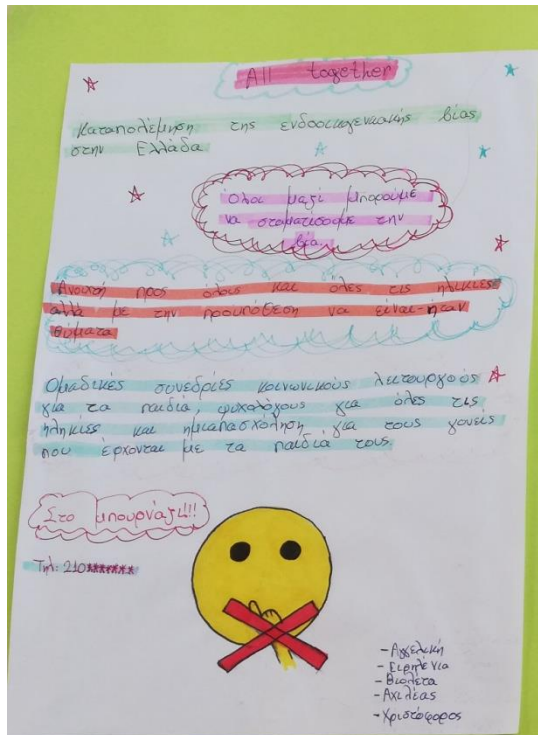 All together
Καταπολέμηση της ενδοοικογενειακής βίας
στην Ελλάδα
Όλοι μαζί μπορούμε
να σταματίσουμε την
βία
Ανοιχτή προς όλους και όλες τις ηλικίες
αλλά με την προυπόθεση να είναι-ήταν
θύματα
Ομαδικές συνεδρίες κοινωνικούς λειτουργούς
για τα παιδιά, ψυχολόγους για όλες τις
ηληκίες και ημιαπασχόληση για τους γονείς
που έρχονται με τα παιδιά τους
Στο μπουρνάζι!!!
Τηλ: 210*******
-Αγγελική
-Ειρηλένια
-Βιολέτα
-Αχιλέας
-Χριστόφορος